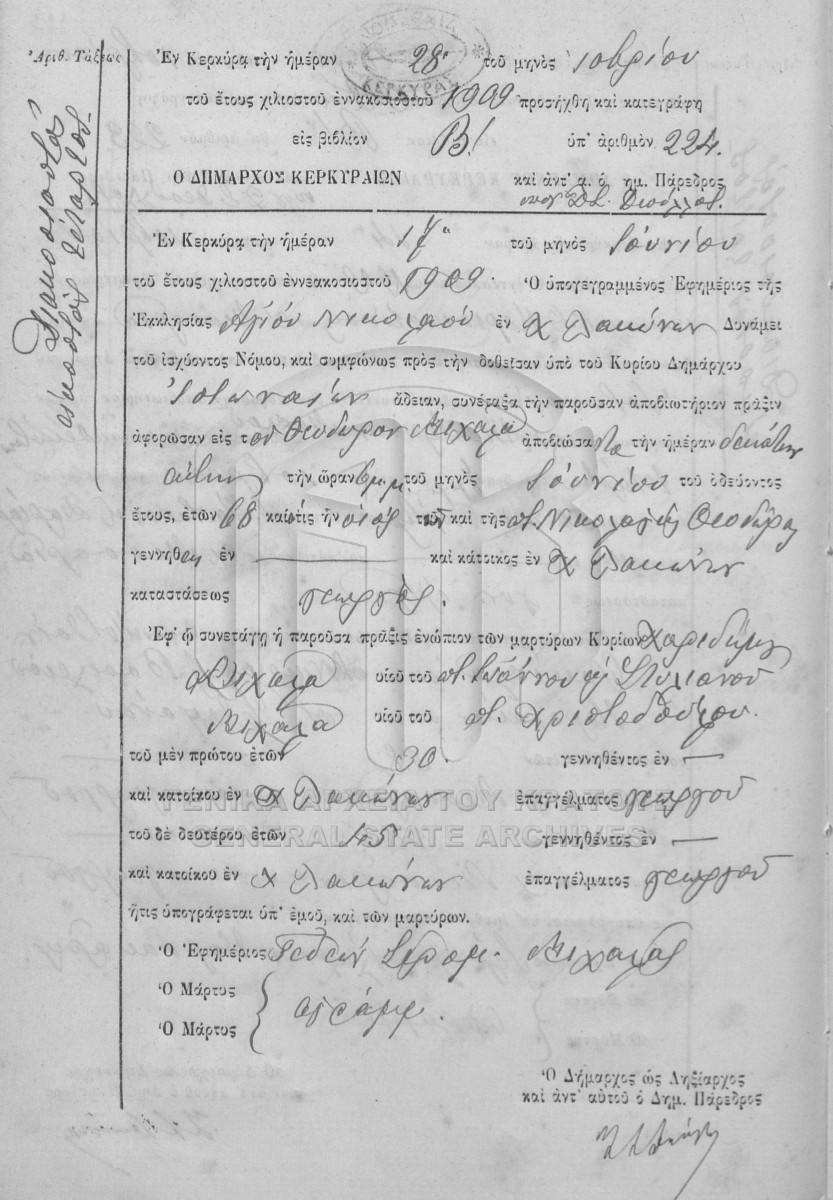 Ἀριθ. Τάξεως
Διακοσιοστὸς
εἰκοστὸς τέταρτος
Ἐν Κερκύρᾳ τὴν ἡμέραν 28 τοῦ μηνὸς
τοῦ ἔτους χιλιοστοῦ ἐννακοσιοστοῦ 1909 προσήχθη καὶ κατεγράφη
εἰς βιβλίον Β! ὑπ' ἀριθμὸν 224.
Ο ΔΗΜΑΡΧΟΣ ΚΕΡΚΥΡΑΙΩΝ καὶ ἀντ' α. ὁ δημ. Πάρεδρος
ΚΕΡΚΥΡΑΣ
Ἐν Κερκύρᾳ τὴν ἡμέραν 17 τοῦ μηνὸς Ἰουνίου
τοῦ ἔτους χιλιοστοῦ ἐννεακοσιοστοῦ 1909. Ὁ ὑπογεγραμμένος Ἐφημέριος τῆς
Ἐκκλησίας Ἁγίου Νικολάου ἐν Χ Λακώνων Δυνάμει
τοῦ ἰσχύοντος Νόμου, καὶ συμφώνως πρὸς τὴν δοθεῖσαν ὑπὸ τοῦ Κυρίου Δημάρχου
Ἱστωναίων ἄδειαν, συνέταξα τὴν παροῦσαν ἀποβιωτήριον πρᾶξιν
ἀφορῶσαν εἰς τὸν Θεόδωρον Μιχαλᾶ ἀποβιώσαντα τὴν ἡμέραν δεκάτην
τὴν ὥραν τοῦ μηνὸς Ἰουνίου τοῦ ὁδεύοντος
ἔτους, ἐτῶν 68 καὶ ὅστις ἦν υἱὸς τοῦ καὶ τῆς π. Νικολάου Θεοδώρας
γεννηθεὶς ἐν — καὶ κάτοικος ἐν Χ Λακώνων
καταστάσεως γεωργὸς.
Ἐφ' ᾧ συνετάγη ἡ παροῦσα πρᾶξις ἐνώπιον τῶν μαρτύρων Κυρίων Χαριδήμου
Μιχαλᾶ υἱοῦ τοῦ π. Ἰωάννου Στυλιανοῦ
Μιχαλᾶ υἱοῦ τοῦ π. Χριστοδούλου.
τοῦ μὲν πρώτου ἐτῶν 30. γεννηθέντος ἐν —
καὶ κατοίκου ἐν Χ Λακώνων ἐπαγγέλματος γεωργοῦ
τοῦ δὲ δευτέρου ἐτῶν 45 γεννηθέντος ἐν —
καὶ κατοίκου ἐν Χ Λακώνων ἐπαγγέλματος γεωργοῦ
ἥτις ὑπογράφεται ὑπ' ἐμοῦ, καὶ τῶν μαρτύρων.
Ὁ Ἐφημέριος Γεδεὼν Μιχαλᾶς
Ὁ Μάρτυς
ἀγράμμ.
Ὁ Μάρτυς
Ὁ Δήμαρχος ὡς Ληξίαρχος
καὶ ἀντ' αὐτοῦ ὁ Δημ. Πάρεδρος
ΓΕΝΙΚΑ ΑΡΧΕΙΑ ΤΟΥ ΚΡΑΤΟΥΣ
GENERAL STATE ARCHIVES